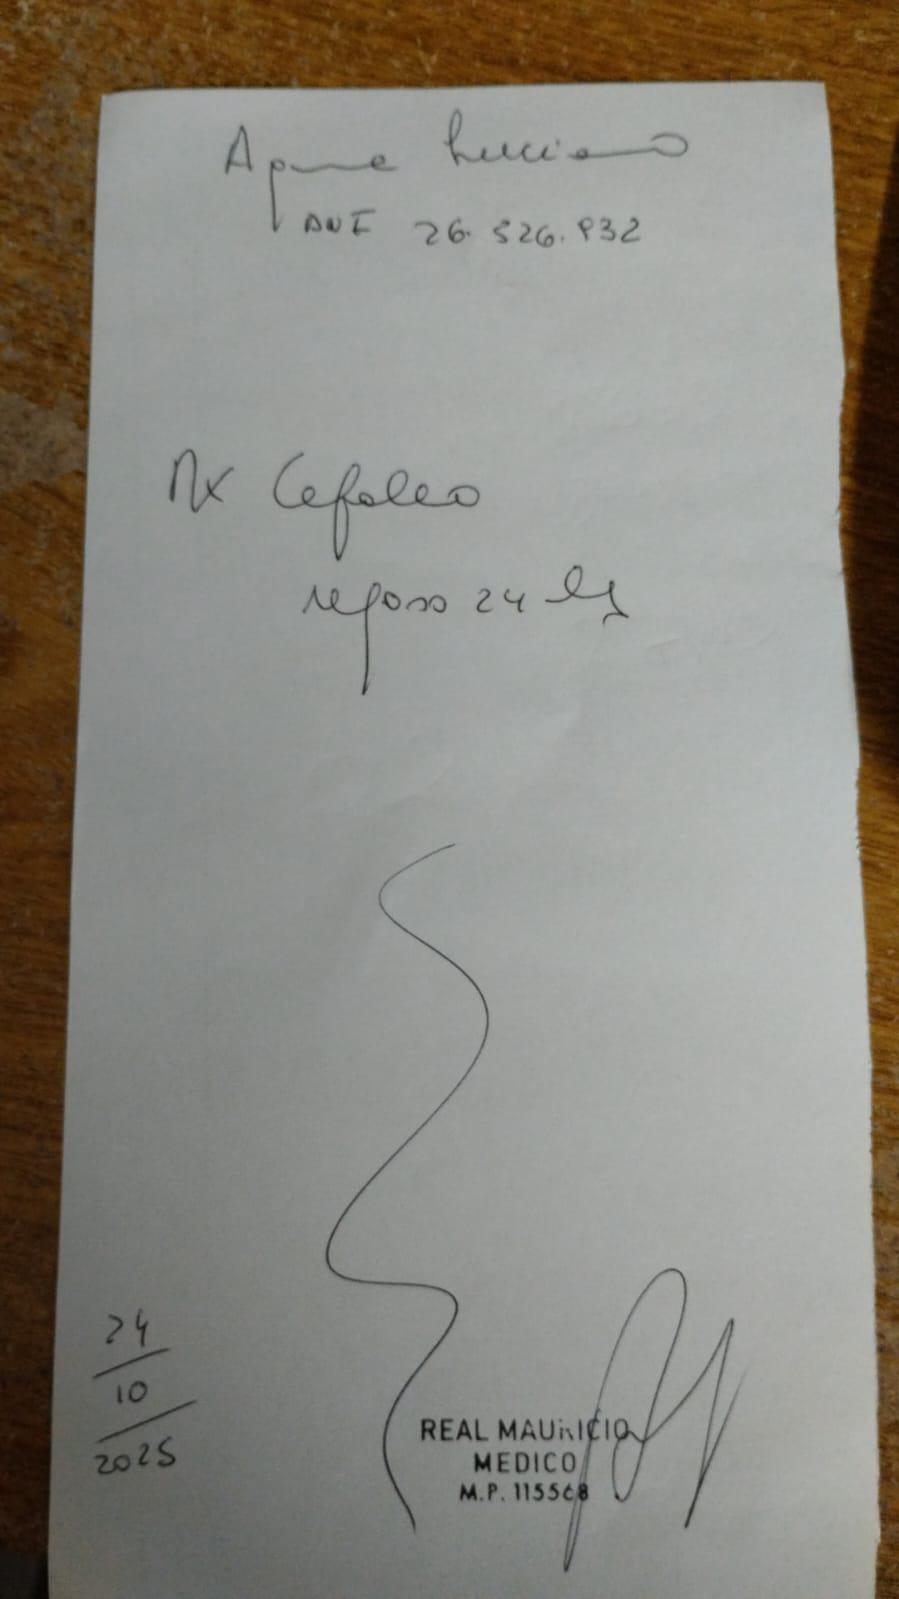 Luciano
DNI 26.526.932
Cefalea
reposo 24 hs
24
10
2025
REAL MAURICIO
MEDICO
M.P. 115568